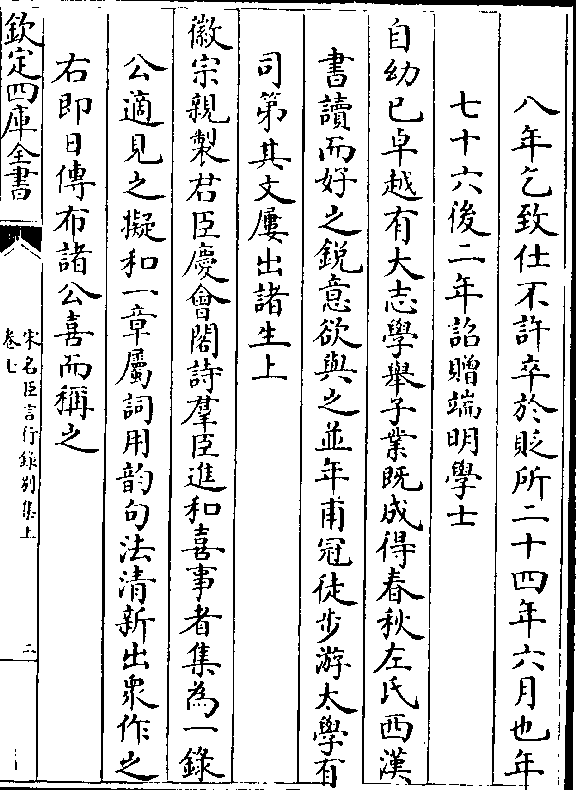 八年乞致仕不許卒於貶所二十四年六月也年
七十六後二年詔贈端明學士
自幼已卓越有大志學舉子業既成得春秋左氏西漢
書讀而好之銳意欲與之並年甫冠徒步游太學有
司第其文屢出諸生上
徽宗親製君臣慶會閣詩羣臣進和喜事者集為一錄
公適見之擬和一章屬詞用韵句法清新出衆作之
右即日傳布諸公喜而稱之
欽定四庫全書
宋名臣言行錄別集上
卷七
二